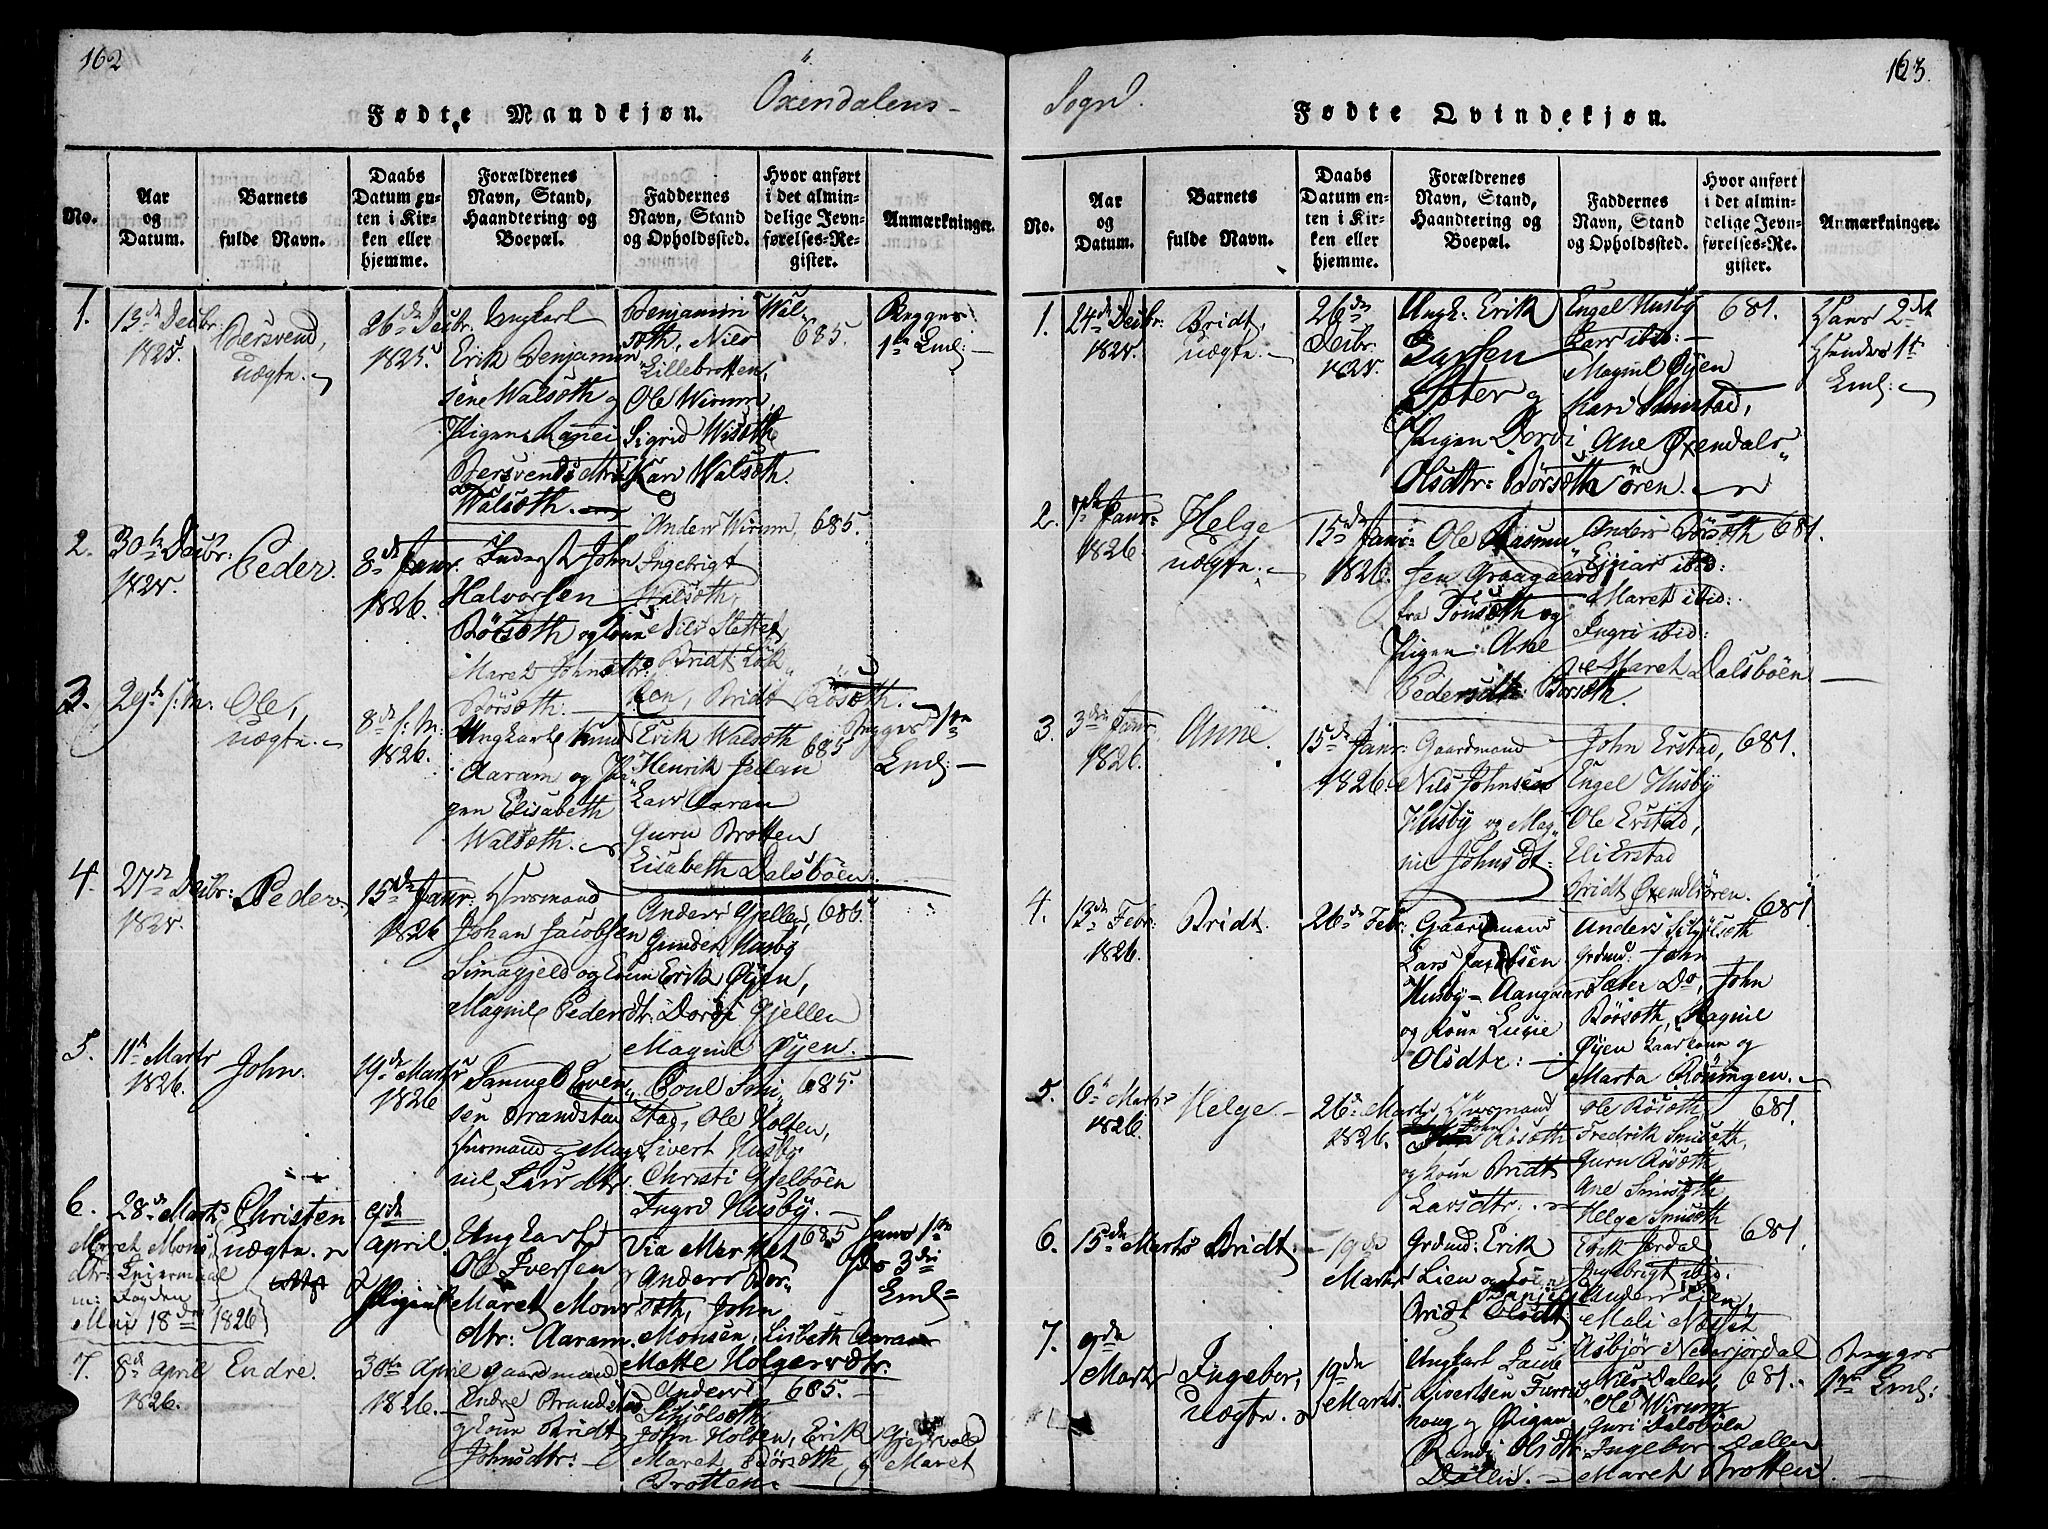 162
Øxendalens-
Fødte Mandkjøn.
No.
Aar
og
Datum.
Barnets
fulde Navn.
Daabs
Datum en-
ten i Kir-
ken eller
hjemme.
Forældrenes
Navn, Stand,
Haandtering og
Boepæl.
Faddernes
Navn, Stand
og Opholdssted.
Hvor anført
i det almin-
delige Jevn-
førelses-Re-
gister.
Anmærkninger.
1.
13de Decbr:
1825.
Bersvend,
uægte.
26de Decbr.
1825.
Ungkarl
Erik Benjamin
sen Walsøth og
Pigen
Bersvendsdtr
Walsøth.
Benjamin Wal-
søth, Nils
Lillebrotten,
Ole Wirum,
Sigrid Wisøth
Kari Walsøth.
685.
Begges
1te Leml: -
2.
30te Decbr:
1825.
Peder.
8de Janr.
1826.
John
Halvorsen
Børsøth og Kone
Maret Johnsdtr.
Børsøth.
Anders Wirum,
Ingebrigt
Walsøth,
Nils Slettet,
Bridt
Bridt Børsøth.
685.
3.
29de s: M:
Ole,
uægte.
8de s: M:
1826.
Ungkarl Knud
Aaram og Pi-
gen Elisabeth
Walsøth.
Erik Walsøth
Henrik
Lars Aaram
Guru Brotten
Lisabeth Dalsbøen.
685
Begges 1te
Leml: -
4.
27de Decbr:
1825.
Peder.
15de Janr:
1826
Huusmand
Johan Jacobsen
Simagjeld og Kone
Magnil Pedersdtr:
Anders Gjellen,
Gunder Husby
Erik Øyen,
Dordi Gjellen
Magnil Øyen.
686.
5.
11te Marts
1826.
John.
19de Marts
1826
Even-
sen Brandstad
Huusmand og Mag-
nil Larsdtr.
Poul Smi-
stad, Ole Holten,
Sivert Husby
Christi Gjelbøen
Ingrd Husby.
685.
6.
28de Marts
Christen
uægte.
9de
April.
Ungkarl
Ole Iversen
Pigen
Maret Mons
dtr: Aaram.
Via Market
Anders Bør-
søth, John
Monsen, Lisbeth Aaram
Mette Holgersdtr.
685
Hans 1te
3die
Leml=
Maret Mons
dtr:
Mai 18de 1826
7.
8de April
1826.
Endre.
30te April
1826.
Gaardmand
Endre Brandstad
og Kone Bridt
Johnsdtr: -
Anders
Schjølsøth,
John Holten, Erik Gjersvold
Maret Børsøth og Maret
Brotten
685. -
163.
Sogn.
Fødte Qvindekjøn.
No.
Aar
og
Datum.
Barnets
fulde Navn.
Daabs
Datum en-
ten i Kir-
ken eller
hjemme.
Forældrenes
Navn, Stand,
Haandtering og
Boepæl.
Faddernes
Navn, Stand
og Opholdssted.
Hvor anført
i det almin-
delige Jevn-
førelses-Re-
gister.
Anmærkninger.
1.
24de Decbr:
1825.
Bridt,
uægte.
26de
Decbr.
1825.
Ungk: Erik
Larsen
og
Pigen Dordi
Olsdtr: Børsøth
Engel Husby
Lars ibid: -
Magnil Øyen
Kari Smistad,
Ane Øxendals-
ören.
681.
Hans 2det
Hendes 1te
Leml:
2.
7de Janr:
1826.
Helge
uægte.
15de Janr:
1826.
Ole Rasmu-
sen Graagaard
fra Tønsøth og
Pigen Ane
Pedersdtr: Børsøth.
Anders Børsøth
Einar ibid:
Maret ibid:
Ingri ibid:
Maret Dalsbøen
681.
3.
3die Janr.
1826.
Anne.
15de Janr:
1826.
Gaardmand
Nils Johnsen
Husby og Mag-
nil Johnsdt:
John Erstad,
Engel Husby
Ole Erstad,
Eli Erstad
Bridt Øxendlsören.
681.
4.
13de Febr:
1826.
Bridt.
26de Febr.
Gaardmand
Lars Jacobsen
Husby - Aangaard
og Kone Lucie
Olsdtr: -
Anders Schjølsøth
Grdmd: John
Sæter Do, John
Børsøth, Magnil
Øyen Gaardkone og
Marta Röningen.
681
5.
6te Marts
1826.
Helge. -
26de Marts
1826.
Huusmand
John Røsøth
og Kone Bridt
Larsdtr:
Ole Røsøth
Fredrik Smisøth,
Guru Røsøth
Ane Smisøth
Helge Smisøth
681.
6.
15de Marts
Bridt.
19de
Marts
Grdmd: Erik
Lien og Kone
Bridt Olsdt:
Erik Jordal
Ingebrigt ibid.
Anders Lien,
Mali Næsset
Asbjør Nederjordal
681.
7.
9de
Marts
Ingebor,
uægte.
19de
Marts.
Ungkarl
Sivertsen Furru
houg og Pigen
Randi Olsdtr
Dalen. -
Nils Dalen,
Ole Wirum
Guri Dalsbøen
Ingebor Dalen
Maret Brotten.
681.
Begges
1te Leml: